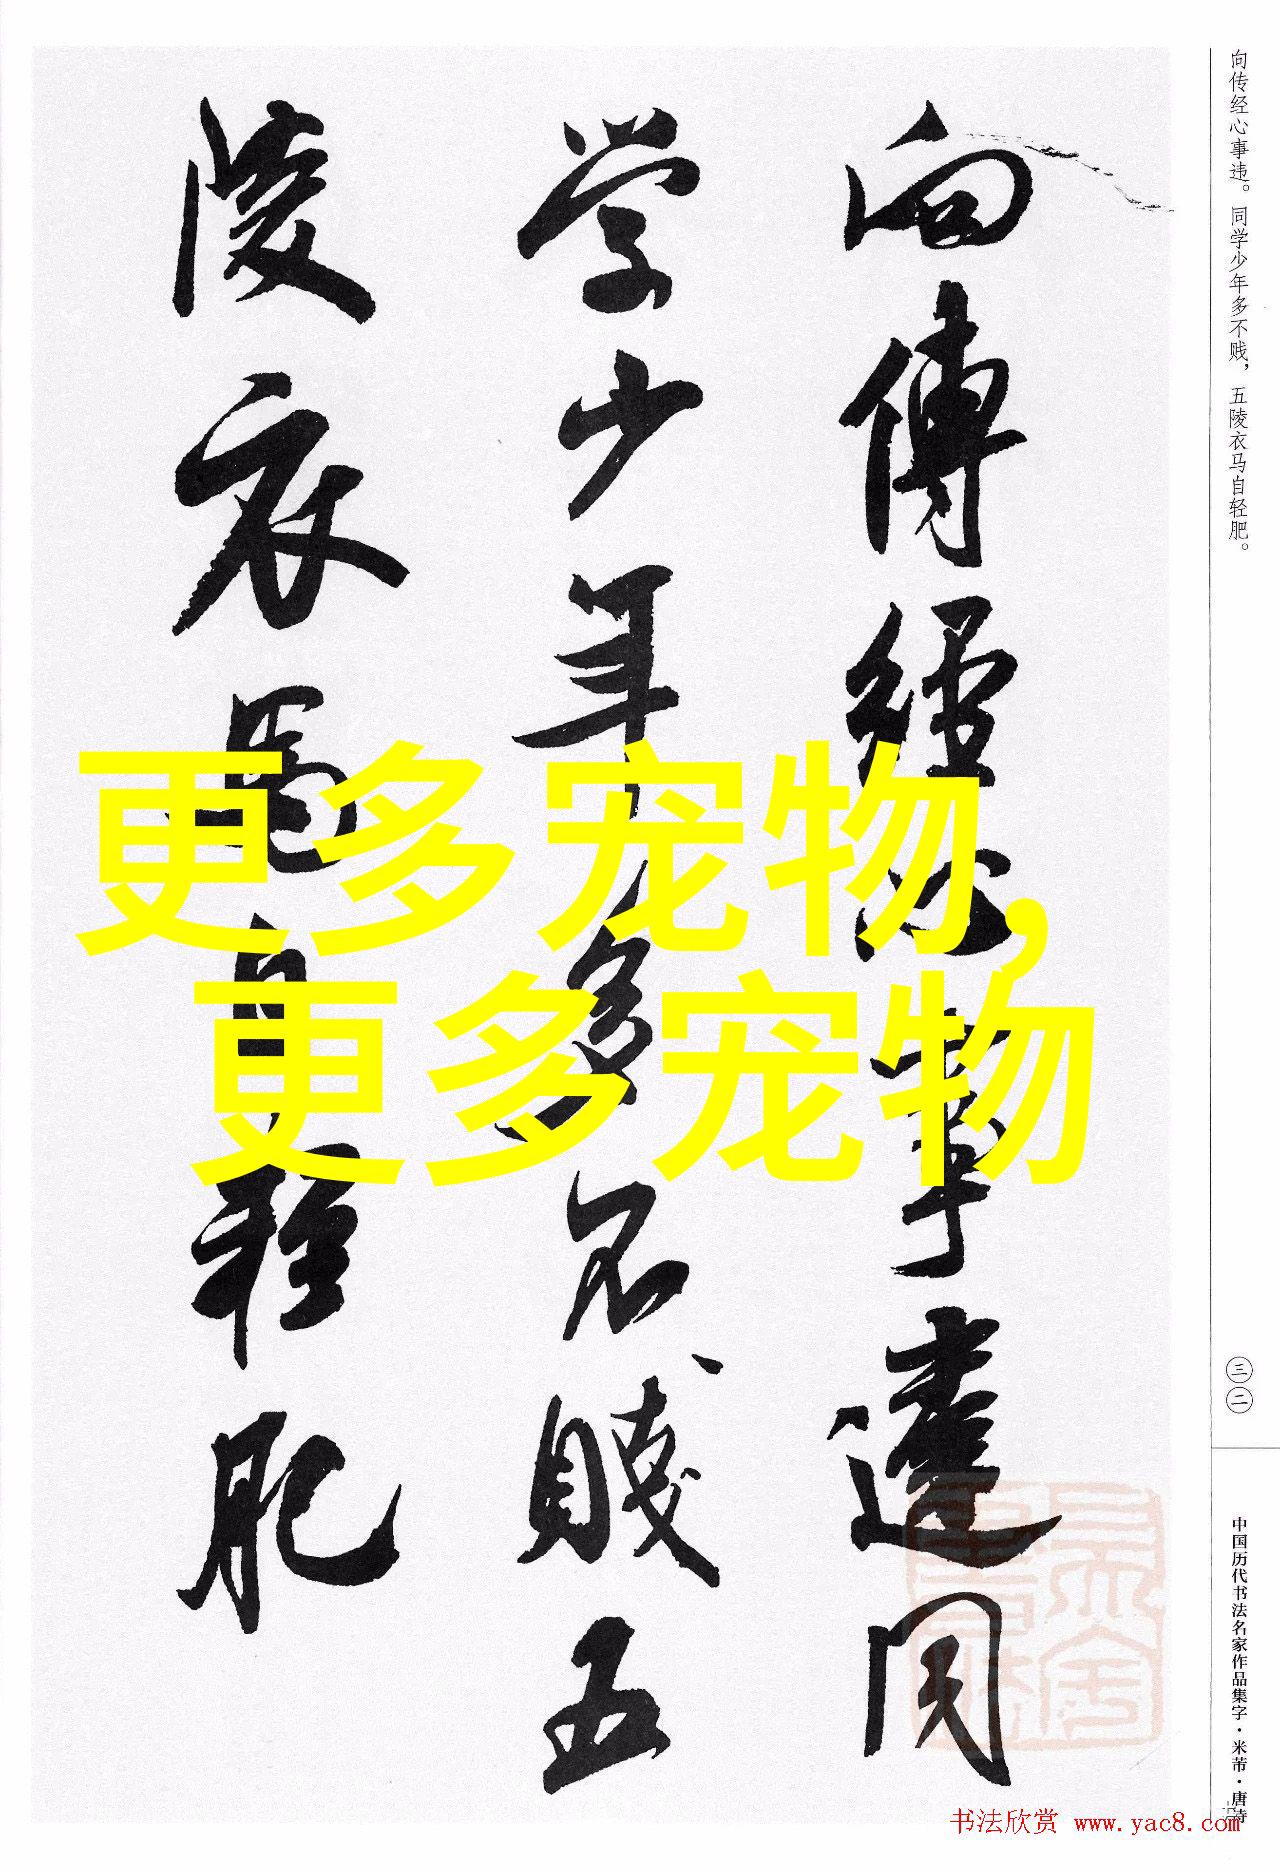 向傳經心事違同
学少年多不賤五
陵衣馬自輕肥
更多宠物,
更多宠物
向传经心事违。同学少年多不贱，五陵衣马自轻肥。
三二
中国历代书法名家作品集字·米芾·唐诗
书法欣赏 www.yac8.com